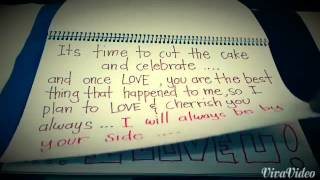 Its time to cut the cake
and celebrate ....
and once LOVE, you are the best
thing that happened to me, so I
plan to LOVE & cherrish you
always ... I will always be by
your side ....
VivaVideo